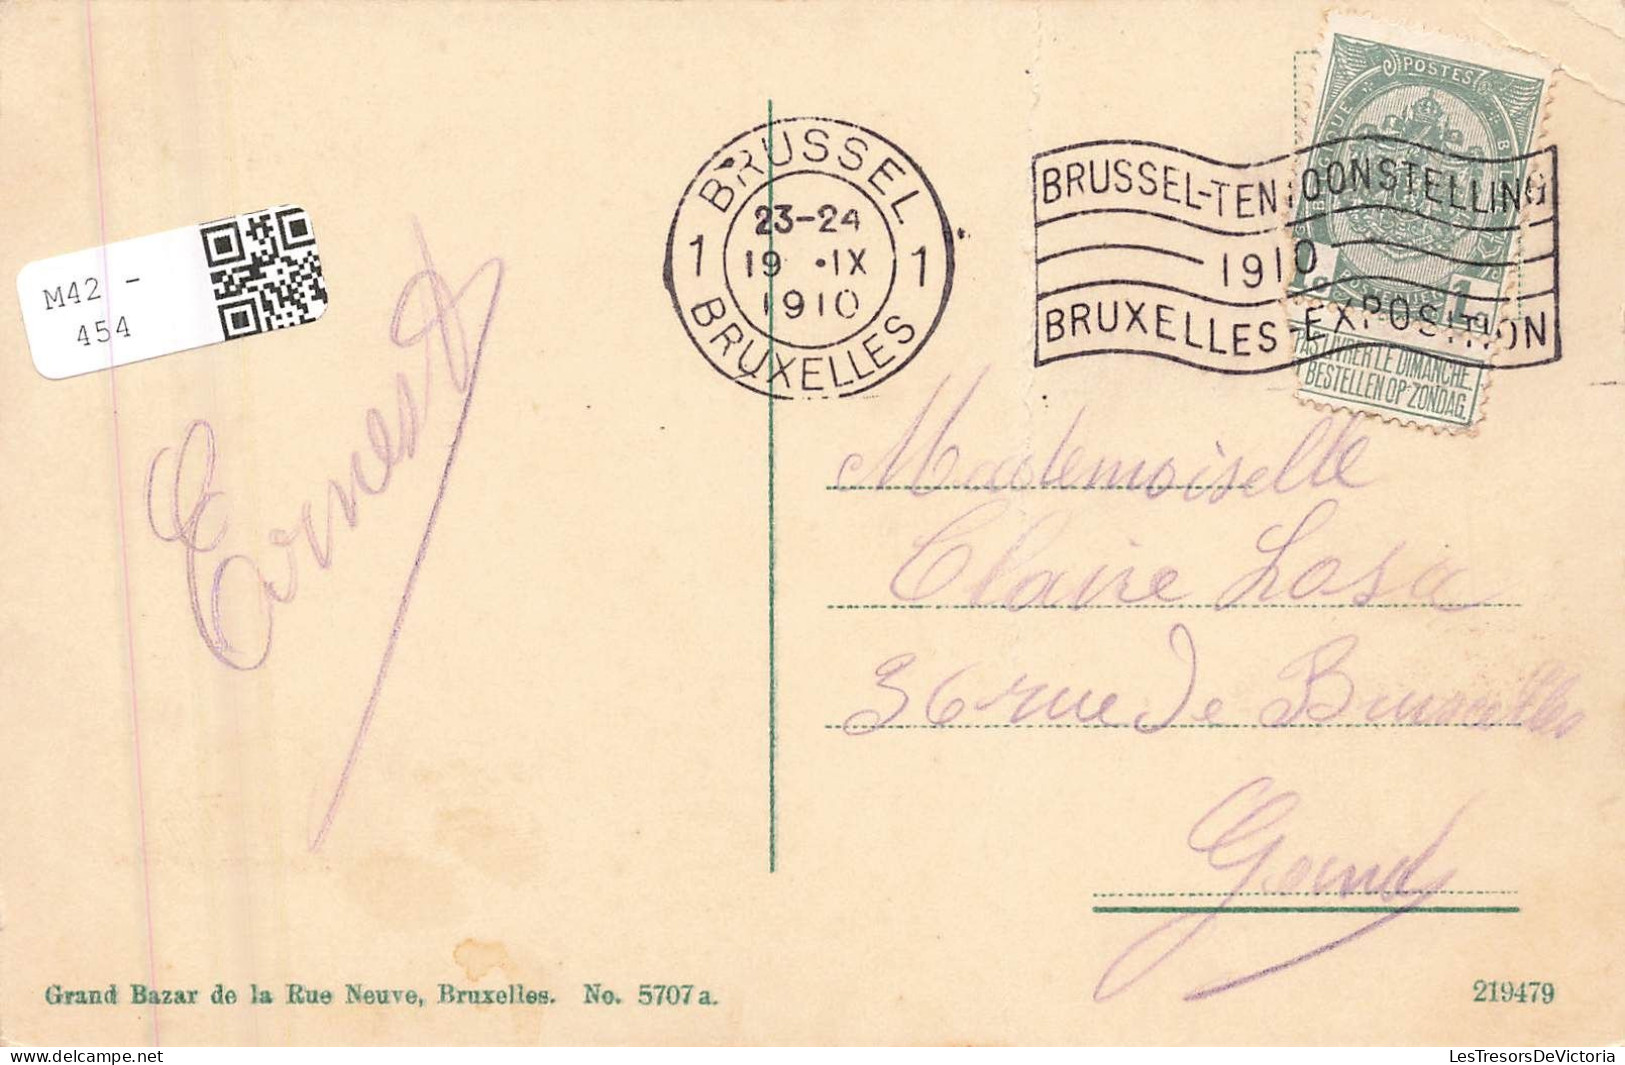 M42 -
454
BRUSSEL
23-24
1 19 •IX 1
1910
BRUXELLES
BRUSSEL-TENTOONSTELLING
1910
BRUXELLES-EXPOSITION
POSTES
BELGIQUE
1
NE PAS LIVRER LE DIMANCHE
BESTELLEN OP ZONDAG.
Ernest
Mademoiselle
Claire Losa
36 rue de Bruxelles
Gand
Grand Bazar de la Rue Neuve, Bruxelles. No. 5707 a.
219479
LesTresorsDeVictoria